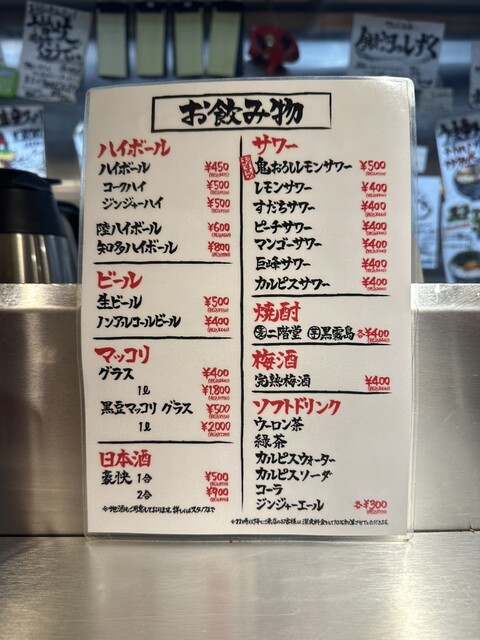 お飲み物
ハイボール
ハイボール ¥450
コークハイ ¥500
ジンジャーハイ ¥500
陸ハイボール ¥600
知多ハイボール ¥800
ビール
生ビール ¥500
ノンアルコールビール ¥400
マッコリ
グラス ¥400
1ℓ ¥1,800
黒豆マッコリ グラス ¥500
1ℓ ¥2,000
日本酒
豪快 1合 ¥500
2合 ¥900
サワー
鬼おろしレモンサワー ¥500
レモンサワー ¥400
すだちサワー ¥400
ピーチサワー ¥400
マンゴーサワー ¥400
巨峰サワー ¥400
カルピスサワー ¥400
焼酎
麦二階堂 芋黒霧島 各¥400
梅酒
完熟梅酒 ¥400
ソフトドリンク
ウーロン茶
緑茶
カルピスウォーター
カルピスソーダ
コーラ
ジンジャーエール 各¥300